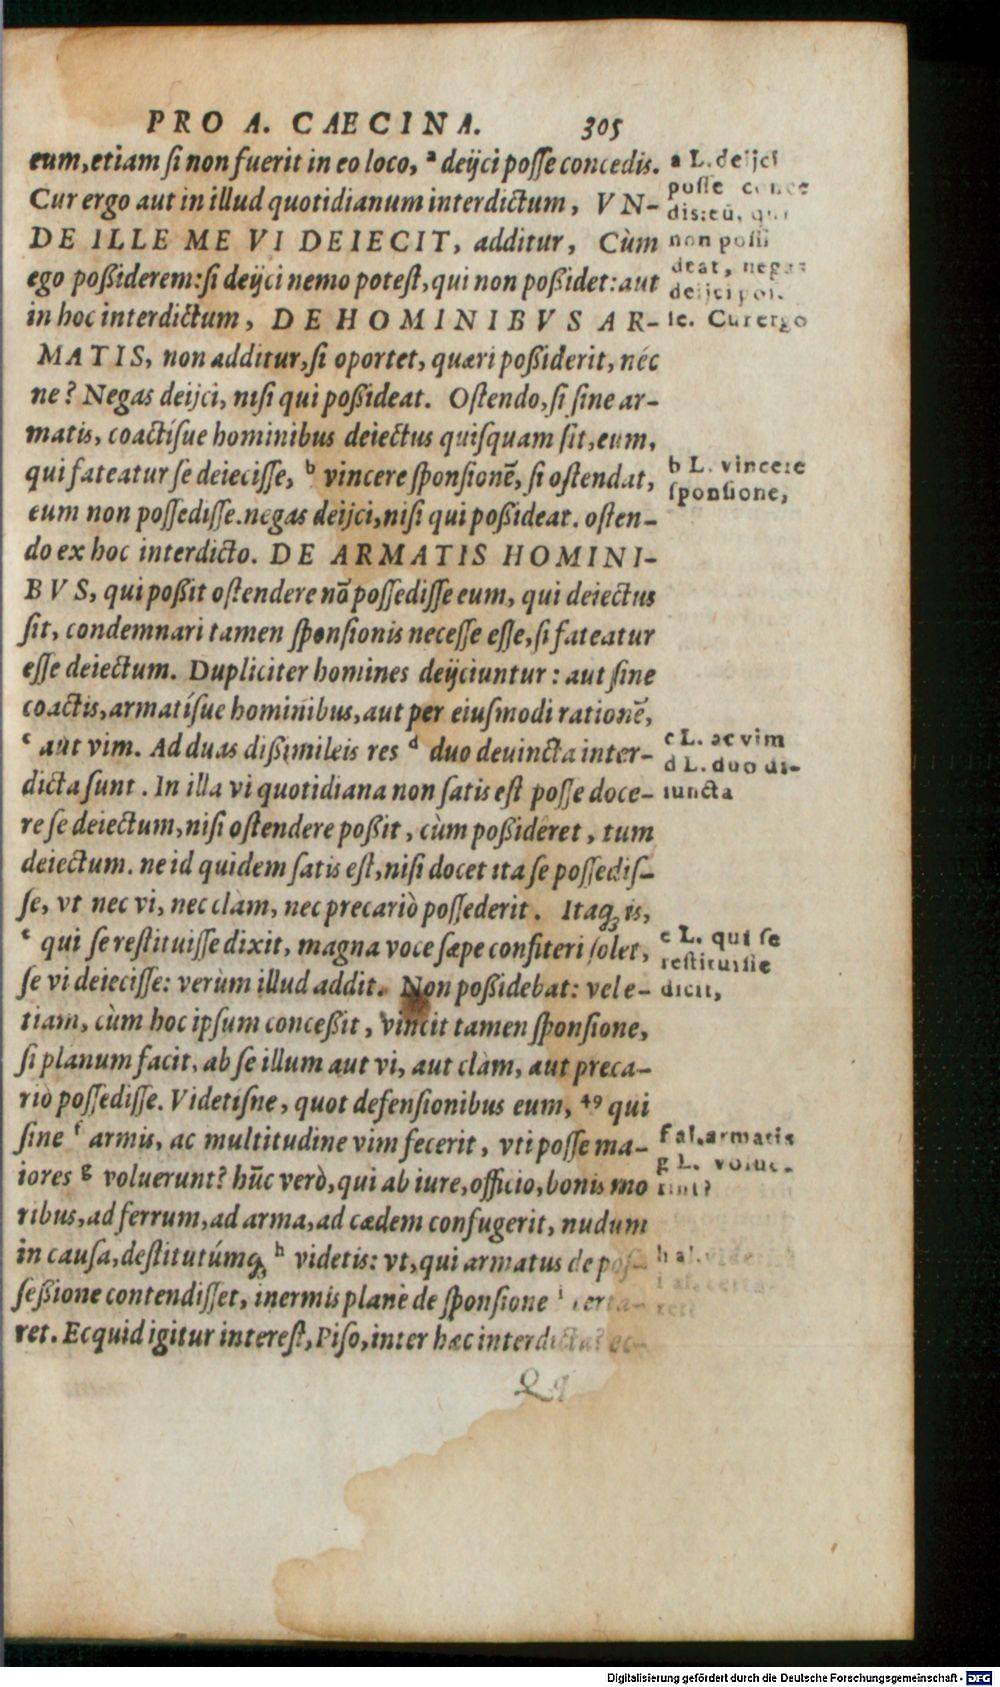 PRO A. CAECINA. 305
eum, etiam si non fuerit in eo loco, ᵃ deijci posse concedis.
Cur ergo aut in illud quotidianum interdictum, VN-
DE ILLE ME VI DEIECIT, additur, Cùm
ego poßiderem: si deijci nemo potest, qui non poßidet: aut
in hoc interdictum, DE HOMINIBVS AR-
MATIS, non additur, si oportet, quæri poßiderit, néc
ne? Negas deijci, nisi qui poßideat. Ostendo, si sine ar-
matis, coactísue hominibus deiectus quisquam sit, eum,
qui fateatur se deiecisse, ᵇ vincere sponsionē, si ostendat,
eum non possedisse. negas deijci, nisi qui poßideat. osten-
do ex hoc interdicto. DE ARMATIS HOMINI-
BVS, qui poßit ostendere nō possedisse eum, qui deiectus
sit, condemnari tamen sponsionis necesse esse, si fateatur
esse deiectum. Dupliciter homines deijciuntur: aut sine
coactis, armatísue hominibus, aut per eiusmodi rationē,
ᶜ aut vim. Ad duas dißimileis res ᵈ duo deuincta inter-
dicta sunt. In illa vi quotidiana non satis est posse doce-
re se deiectum, nisi ostendere poßit, cùm poßideret, tum
deiectum. ne id quidem satis est, nisi docet ita se possedis-
se, vt nec vi, nec clàm, nec precariò possederit. Itaq; is,
ᵉ qui se restituisse dixit, magna voce sæpe confiteri solet,
se vi deiecisse: verùm illud addit. Non poßidebat: vel e-
tiam, cùm hoc ipsum conceßit, vincit tamen sponsione,
si planum facit, ab se illum aut vi, aut clàm, aut preca-
riò possedisse. Videtisne, quot defensionibus eum, ⁴⁹ qui
sine ᶠ armis, ac multitudine vim fecerit, vti posse ma-
iores ᵍ voluerunt? hūc verò, qui ab iure, officio, bonis mo
ribus, ad ferrum, ad arma, ad cædem confugerit, nudum
in causa, destitutúmq; ʰ videtis: vt, qui armatus de pos-
seßione contendisset, inermis planè de sponsione ⁱ certa-
ret. Ecquid igitur interest, Piso, inter hæc interdicta? ec-
Qq
a L. deijci
posse conce
dis: eū, qui
non possi
deat, negas
deijci pos-
se. Cur ergo
b L. vincere
sponsione,
c L. ac vim
d L. duo di-
iuncta
e L. qui se
restituisse
dicit,
f al. armatis
g L. volue-
rint?
h al.
i al. certa-
ret?
Digitalisierung gefördert durch die Deutsche Forschungsgemeinschaft - DFG